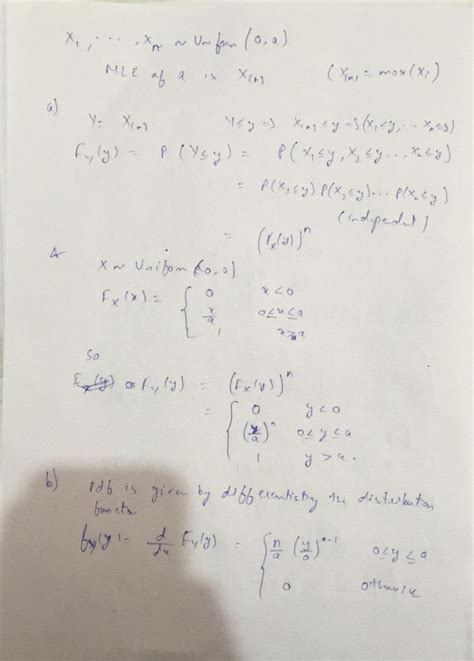 X₁, ..., Xₙ ~ Uniform (0, a)
MLE of a is X₍ₙ₎ (X₍ₙ₎ = max(Xᵢ)
a)
Y = X₍ₙ₎ Y≤y ⇒ X₍ₙ₎≤y ⇒ (X₁≤y, ... Xₙ≤y)
F_Y(y) = P(Y≤y) = P(X₁≤y, X₂≤y ..., Xₙ≤y)
= P(X₁≤y) P(X₂≤y) ... P(Xₙ≤y)
(independent)
= (F_X(y))ⁿ
X ~ Uniform (0, a)
F_X(x) = { 0 x<0
x/a 0≤x≤a
1 x>a
So
F_Y(y) = (F_X(y))ⁿ
= { 0 y<0
(y/a)ⁿ 0≤y≤a
1 y>a.
b) Pdf is given by differentiating the distribution
function
f_Y(y) = d/dx F_Y(y) = { n/a (y/a)ⁿ⁻¹ 0≤y≤a
0 otherwise